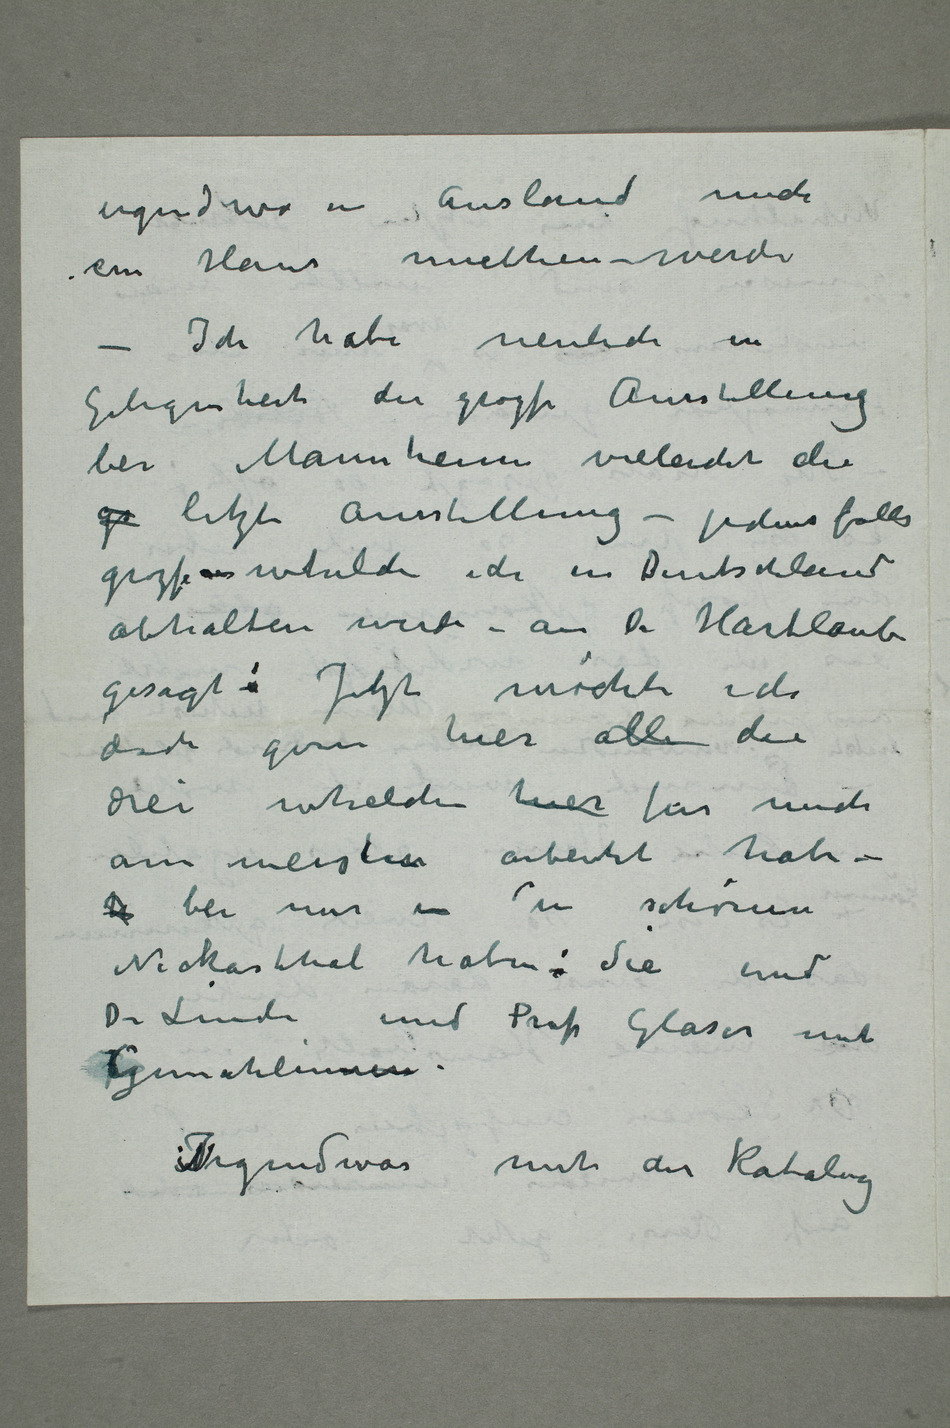 irgendwo in Ausland mich
ein Haus miethen – werde
– Ich habe neulich in
Gelegenheit der grosse Ausstellung
bei Mannheim vieleicht die
gr letzte Ausstellung – jedensfalls
grosse – whelche ich in Deutschland
abhalten werde – an Dr Hartlaub
gesagt: Jetzt möchte ich
doch gern hier alle die
drei whelche hier für mich
am meisten arbeitet habe –
bei mir in in schönen
Neckarthal haben: Sie und
Dr Linde und Prof Glaser mit
Gemahlinnen.
Irgendwas mit der Katalog